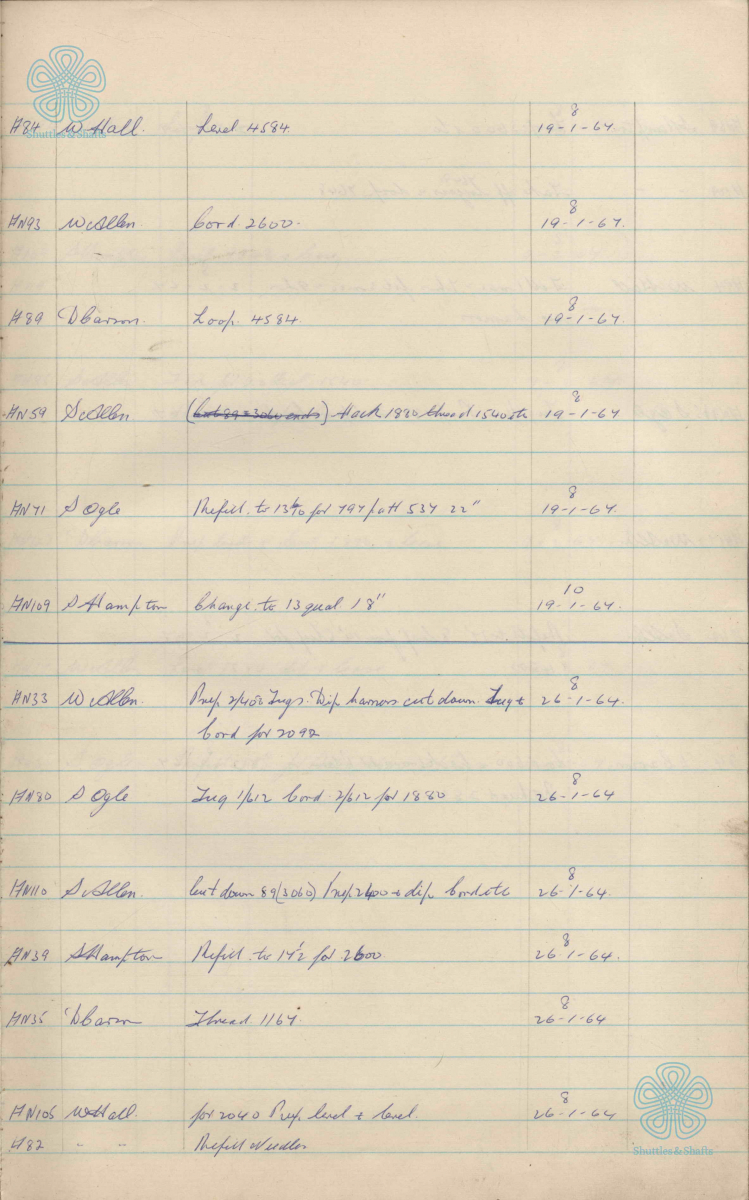 8
H84 W Hall. Level 4584. 19-1-67.
Shuttles & Shafts
8
HN93 W Allen. Cord. 2600. 19-1-67.
8
H89 D Carson. Loop. 4584. 19-1-67.
8
HN59 S Allen ( 89 = 3060 ends) Hack 1880 thread 1540 etc 19-1-67
8
HN71 S Ogle Refill. to for 797 patt 537 22" 19-1-67.
10
HN109 S Hampton Change. to 13 qual 18" 19-1-67.
8
HN33 W Allen. Prep 2/408 Lugs. Dip harness cut down. Lug + 26-1-64.
Cord for 2092
8
HN80 S Ogle Lug 1/612 Cord. 2/612 for 1880 26-1-64
8
HN110 S Allen. Cut down 89 (3060) Prep 2400 + dip Cord etc 26-1-64.
8
HN39 S Hampton Refill. to 14½ for 2600. 26-1-64.
8
HN35 D Carson Thread 1167. 26-1-64
8
HN105 W Hall. for 2040 Prep level + level. 26-1-64
H82 " " Refill Needles
Shuttles & Shafts